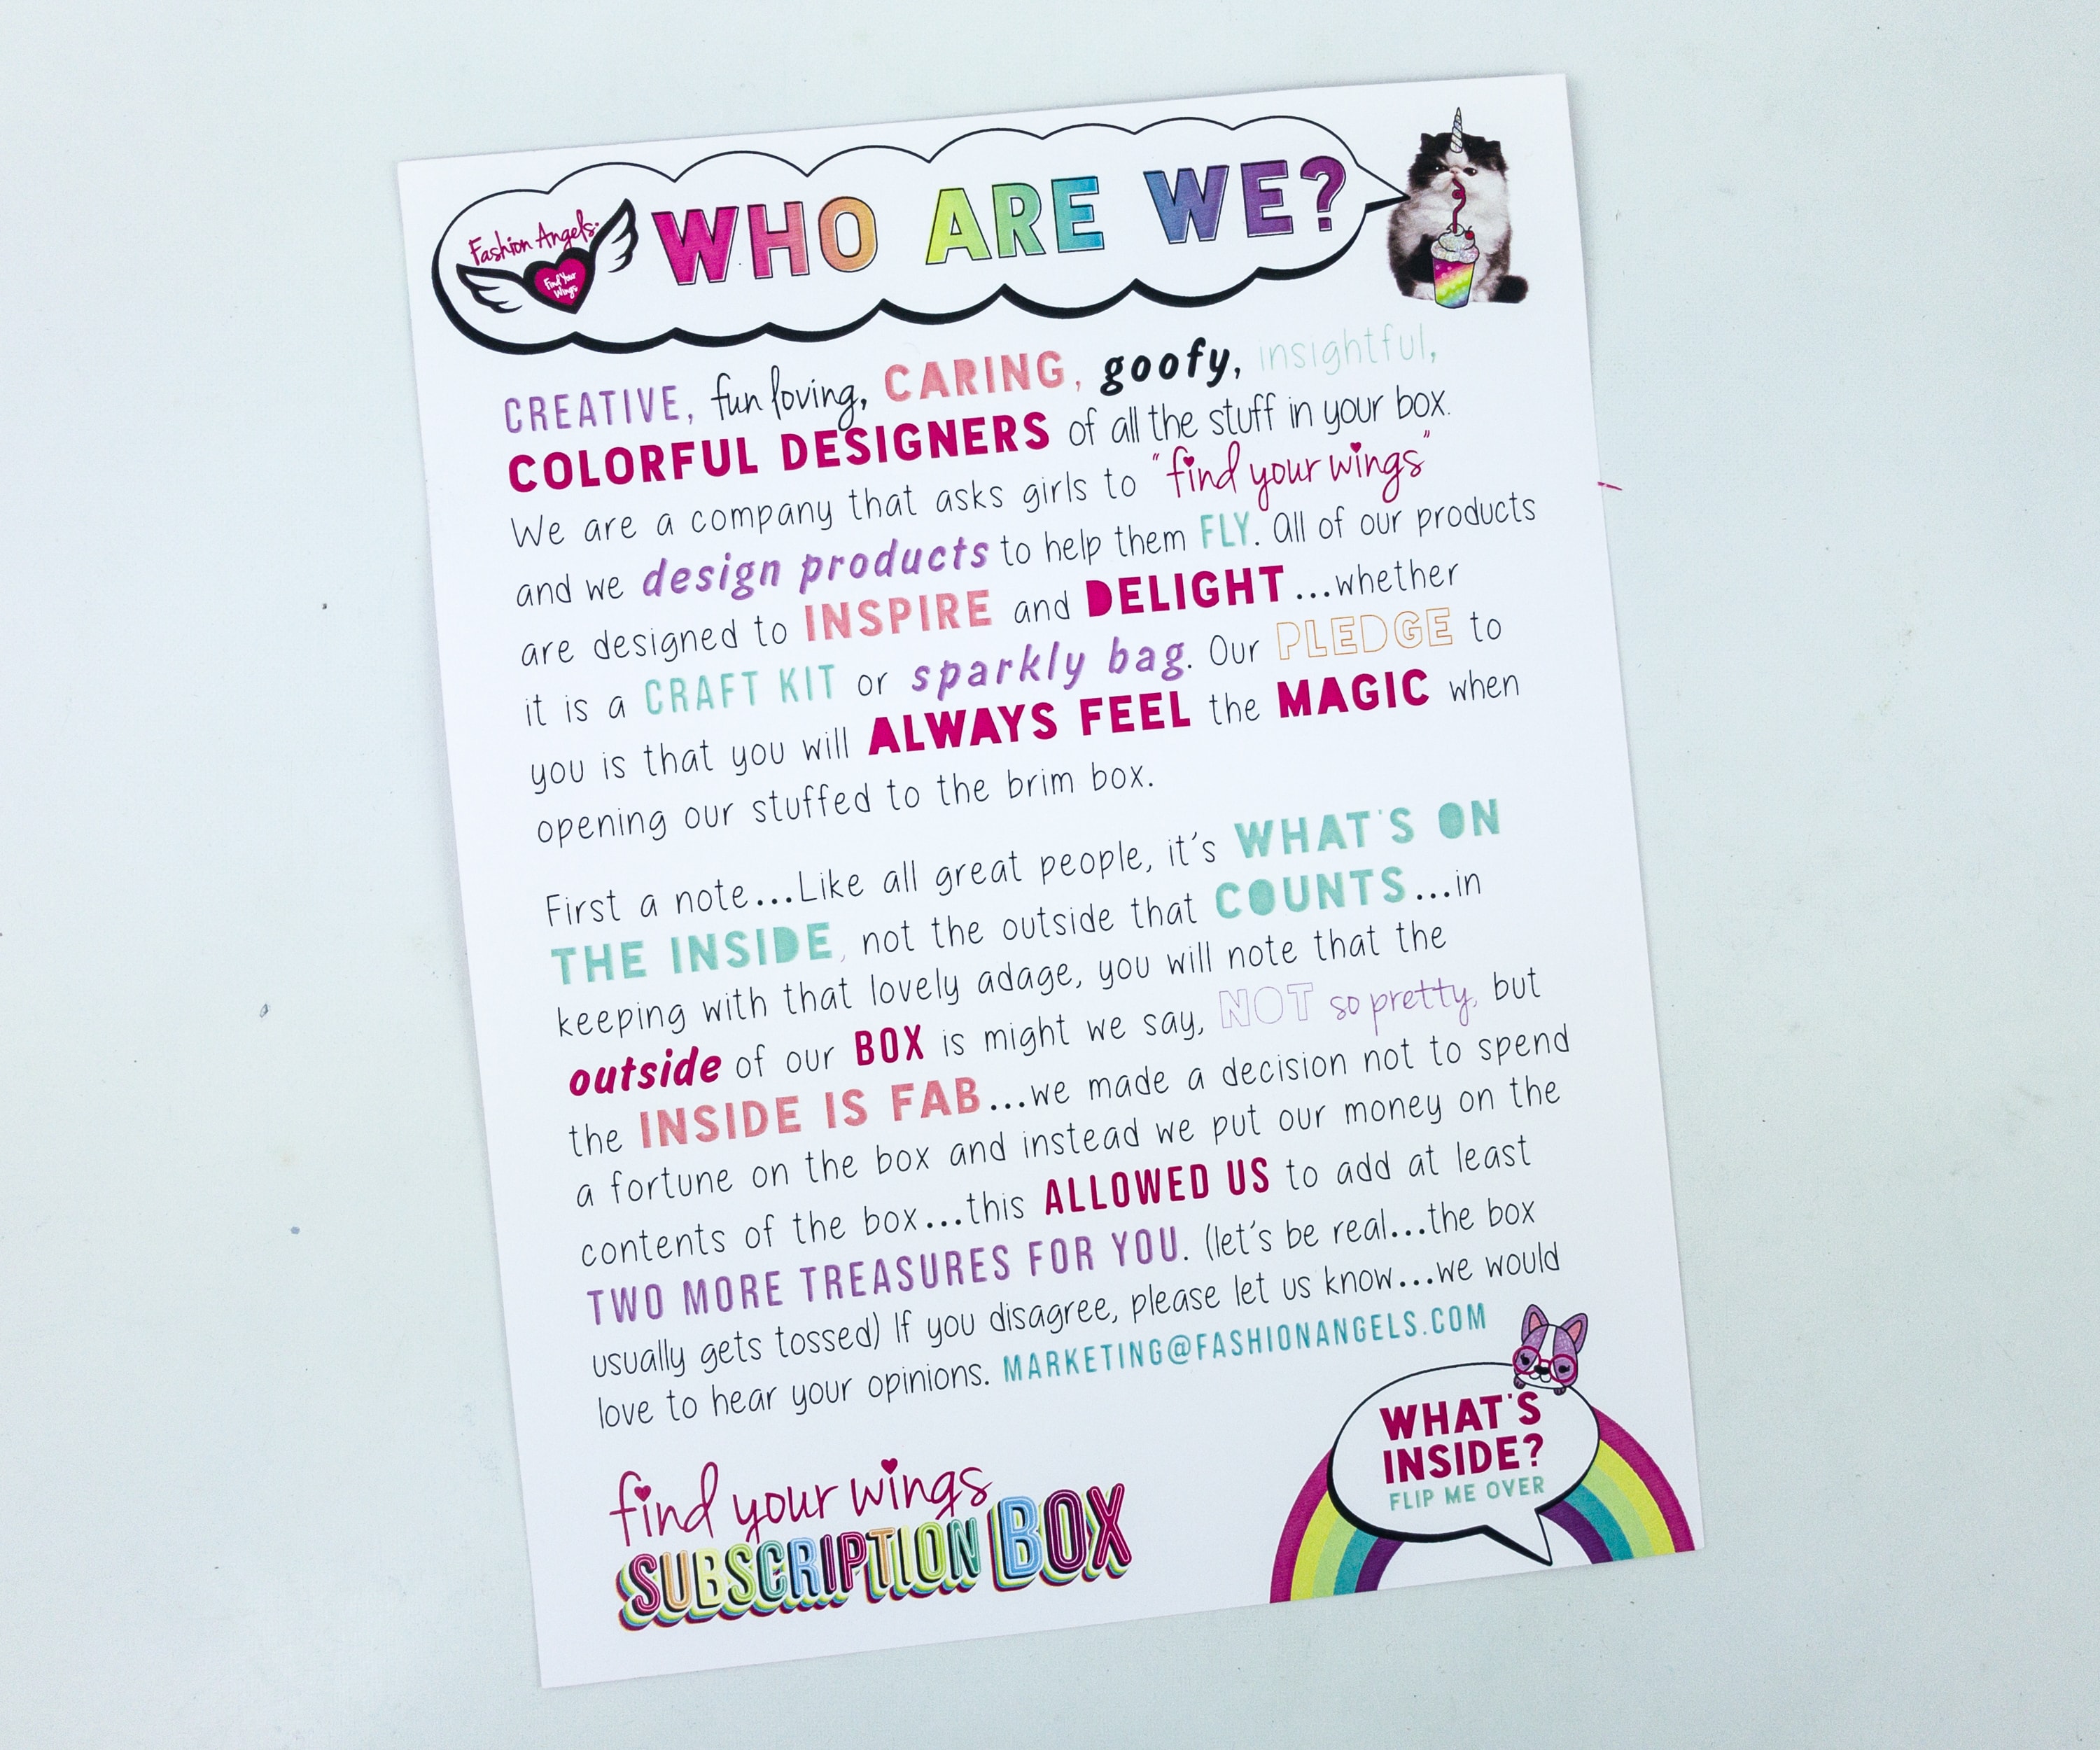 Fashion Angels
Find Your
Wings
WHO ARE WE?
CREATIVE, fun loving, CARING, goofy, insightful,
COLORFUL DESIGNERS of all the stuff in your box.
We are a company that asks girls to "find your wings"
and we design products to help them FLY. All of our products
are designed to INSPIRE and DELIGHT...whether
it is a CRAFT KIT or sparkly bag. Our PLEDGE to
you is that you will ALWAYS FEEL the MAGIC when
opening our stuffed to the brim box.
First a note...Like all great people, it's WHAT'S ON
THE INSIDE, not the outside that COUNTS...in
keeping with that lovely adage, you will note that the
outside of our BOX is might we say, NOT so pretty, but
the INSIDE IS FAB...we made a decision not to spend
a fortune on the box and instead we put our money on the
contents of the box...this ALLOWED US to add at least
TWO MORE TREASURES FOR YOU. (let's be real...the box
usually gets tossed) If you disagree, please let us know...we would
love to hear your opinions. MARKETING@FASHIONANGELS.COM
find your wings
SUBSCRIPTION BOX
WHAT'S
INSIDE?
FLIP ME OVER